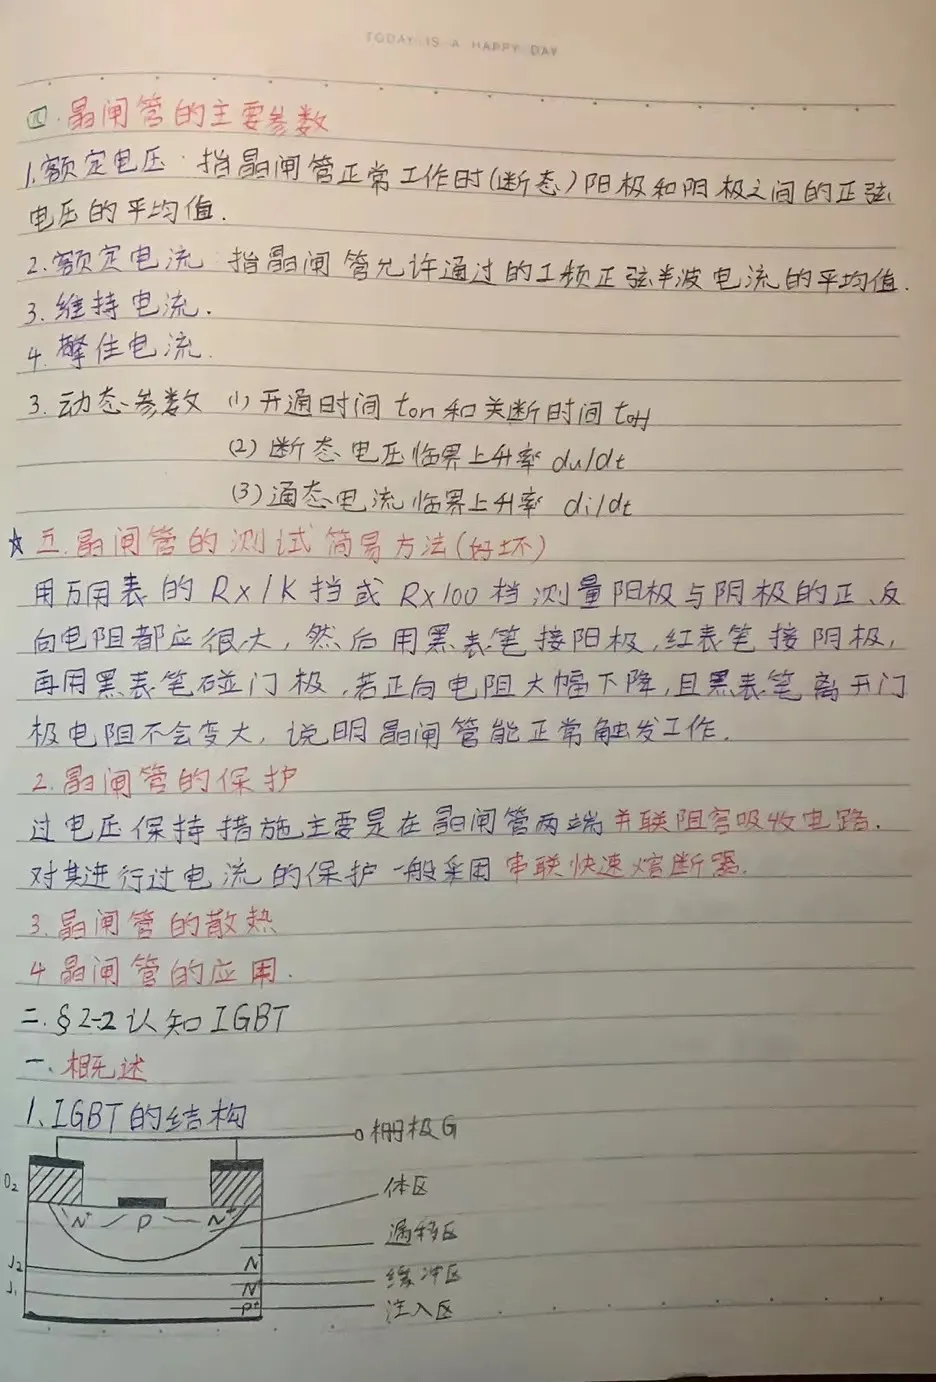 TODAY IS A HAPPY DAY
四.晶闸管的主要参数
1.额定电压:指晶闸管正常工作时(断态)阳极和阴极之间的正弦
电压的平均值.
2.额定电流:指晶闸管允许通过的工频正弦半波电流的平均值.
3.维持电流.
4.擎住电流.
3.动态参数 (1)开通时间ton和关断时间toff
(2)断态电压临界上升率 du/dt
(3)通态电流临界上升率 di/dt
☆五.晶闸管的测试简易方法(好坏)
用万用表的R×1K挡或R×100档测量阳极与阴极的正、反
向电阻都应很大,然后用黑表笔接阳极,红表笔接阴极,
再用黑表笔碰门极,若正向电阻大幅下降,且黑表笔离开门
极电阻不会变大,说明晶闸管能正常触发工作.
2.晶闸管的保护
过电压保持措施主要是在晶闸管两端并联阻容吸收电路.
对其进行过电流的保护一般采用串联快速熔断器.
3.晶闸管的散热
4.晶闸管的应用.
二.§2-2认知IGBT
一、概述
1、IGBT的结构
栅极G
O₂
体区
N⁺ P N⁺
漏移区
J₂ N⁻
缓冲区
J₁ N⁺
注入区
P⁺